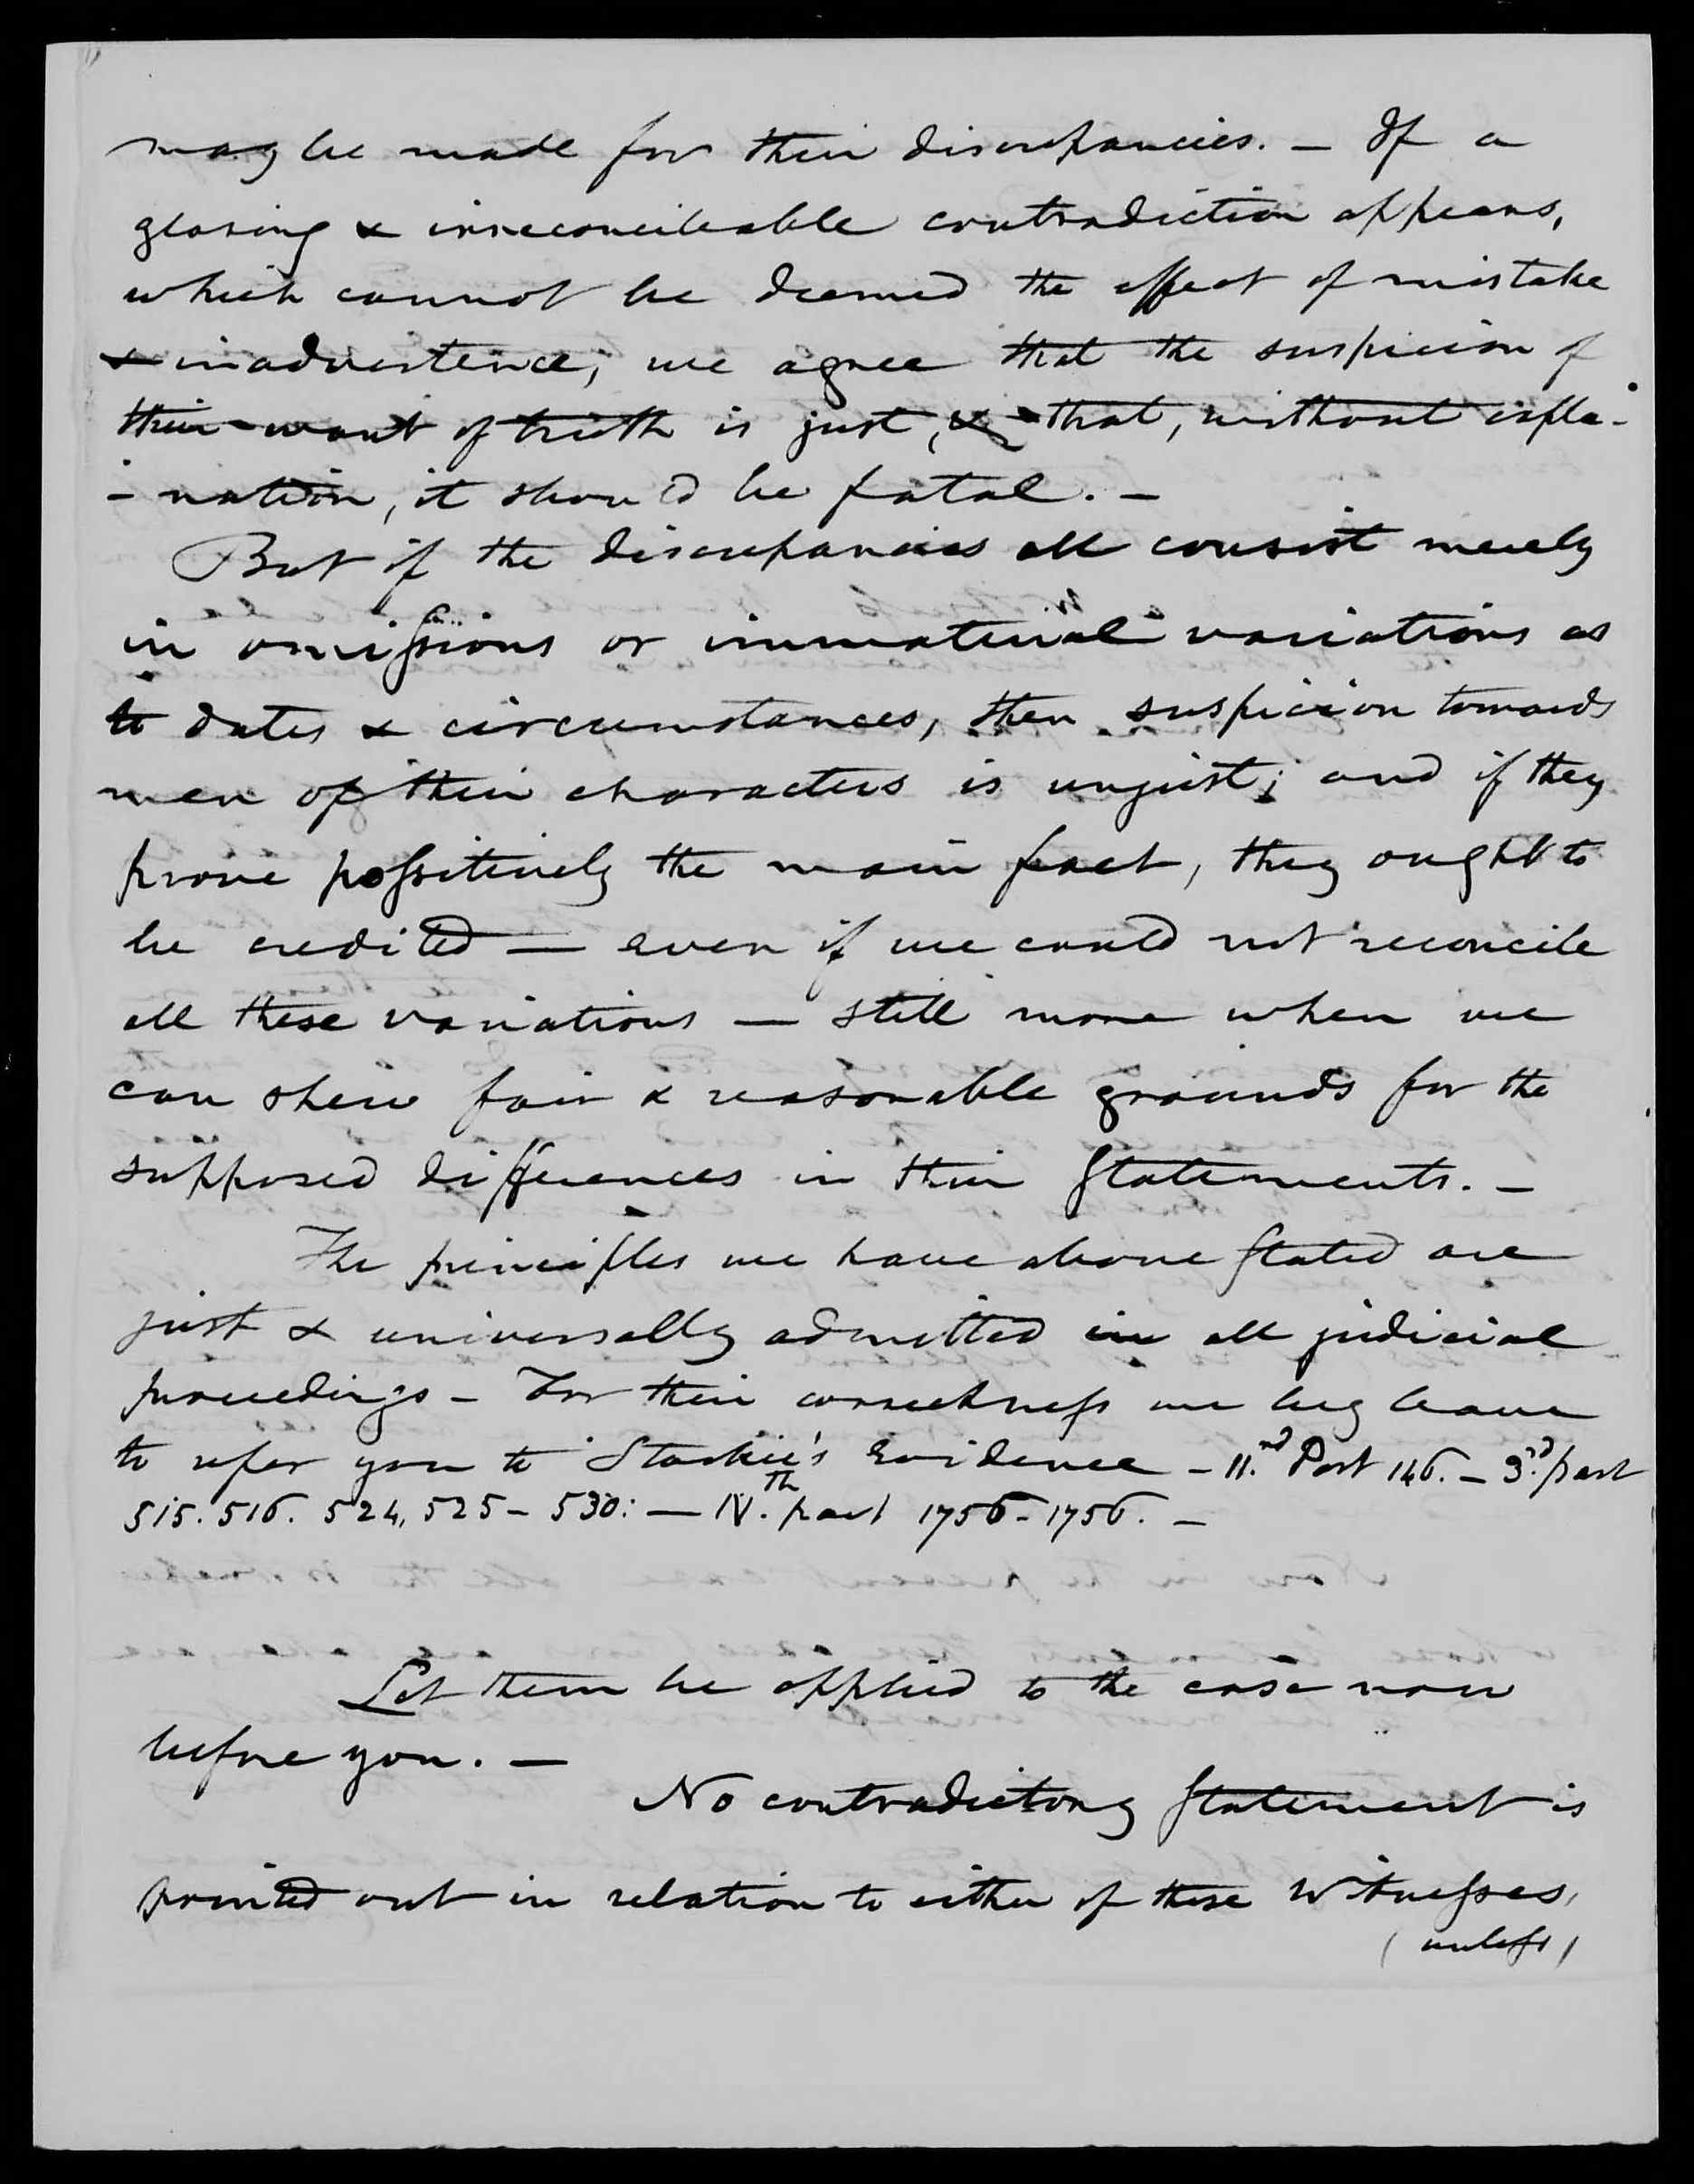 may be made for their discrepancies. — If a
glaring & irreconcileable contradiction appears,
which cannot be deemed the effect of mistake
& inadvertence, we agree that the suspicion of
their want of truth is just, & that, without expla-
- nation, it should be fatal. —
But if the discrepancies all consist merely
in omissions or immaterial variations as
to dates & circumstances, then suspicion towards
men of their characters is unjust; and if they
prove possitively the main fact, they ought to
be credited — even if we could not reconcile
all these variations — still more when we
can shew fair & reasonable grounds for the
supposed differences in their Statements. —
The principles we have above stated are
just & universally admitted in all judicial
proceedings — For their correctness we beg leave
to refer you to Starkie's Evidence — 11.nd Part 146. — 3.d part
515. 516. 524, 525 — 530: — IV.th part 1756 - 1756. —
Let them be applied to the case now
before you. —
No contradictory Statement is
pointed out in relation to either of these Witnesses,
(unless)